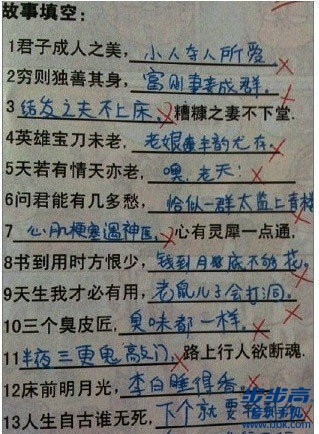 故事填空:
1君子成人之美,小人夺人所爱.
2穷则独善其身,富则妻妾成群.
3结发之夫不上床,糟糠之妻不下堂.
4英雄宝刀未老,老娘丰韵尤存.
5天若有情天亦老,噢,老天!
6问君能有几多愁,恰似一群太监上青楼
7心肌梗塞遇神医,心有灵犀一点通.
8书到用时方恨少,钱到月底不够花.
9天生我才必有用,老鼠儿子会打洞.
10三个臭皮匠,臭味都一样.
11半夜三更鬼敲门,路上行人欲断魂.
12床前明月光,李白睡得香.
13人生自古谁无死,下个就要
步步高
www.bbk.com